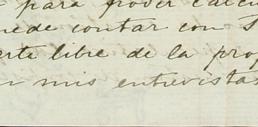 para poder calcu
uede contar con S
erte libre de la prop
mis entrevistas